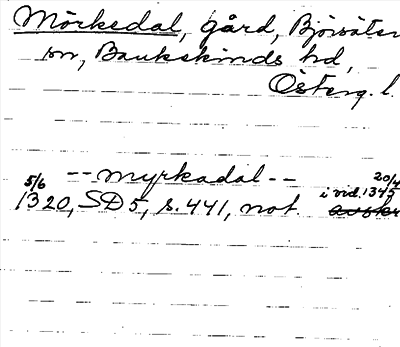 Mörkedal, gård, Björsäter
sn, Bankekinds hd,
Österg. l.
-- myrkadal --
5/6 1320, SD 5, s. 441, not. i vid. 1345 20/4